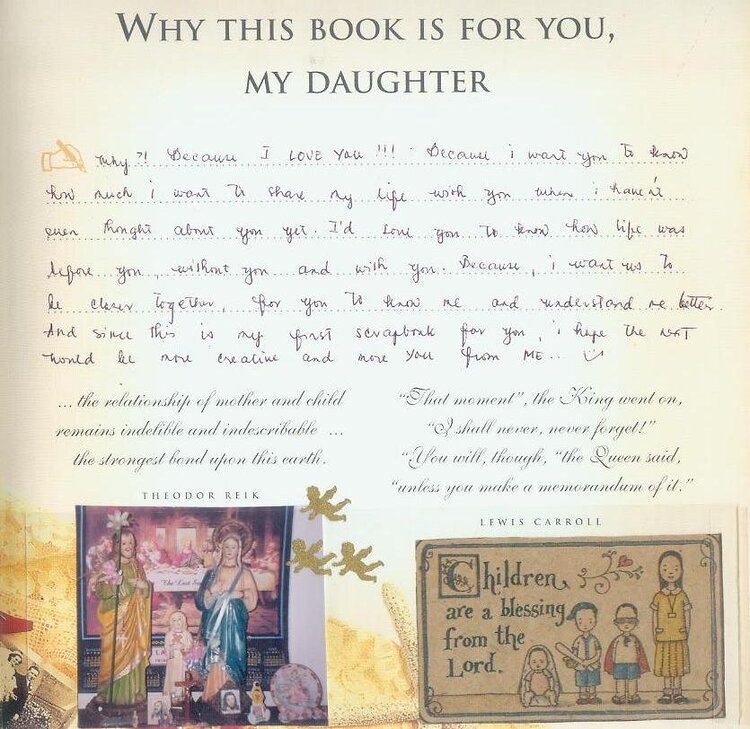 WHY THIS BOOK IS FOR YOU,
MY DAUGHTER
Why?! Because I LOVE YOU!!! Because i want you to know
how much i want to share my life with you when i haven't
even thought about you yet. I'd love you to know how life was
before you, without you and with you. Because, i want us to
be closer together, for you to know me and understand me better.
And since this is my first scrapbook for you, i hope the next
would be more creative and more YOU from ME...
... the relationship of mother and child
remains indelible and indescribable ...
the strongest bond upon this earth.
THEODOR REIK
"That moment", the King went on,
"I shall never, never forget!"
"You will, though, "the Queen said,
"unless you make a memorandum of it."
LEWIS CARROLL
The Last
Children
are a blessing
from the
Lord.